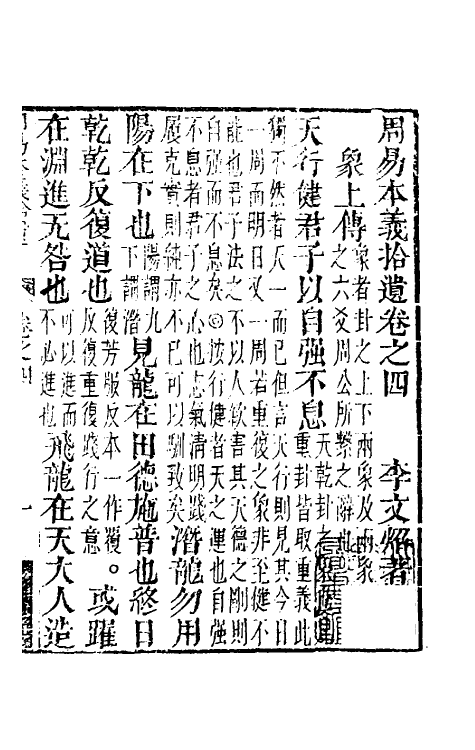 周易本義拾遺卷之四　李文炤著
象上傳象者卦之上下兩象及兩象
之六爻周公所繫之辭也
天行健君子以自强不息天乾卦之
重卦皆取重義此
獨不然者天一而已但言天行則見其今日
一周而明日又一周若重復之象非至健不
能也君子法之不以人欲害其天德之剛則
自强而不息矣◎按行健者天之運也自强
不息者君子之心也志氣清明踐
履克實則純亦不已可以馴致矣潛龍勿用
陽在下也陽謂九
下謂潛見龍在田德施普也終日
乾乾反復道也復芳服反本一作覆。
反復重復踐行之意或躍
在淵進无咎也可以進而
不必進也飛龍在天大人造